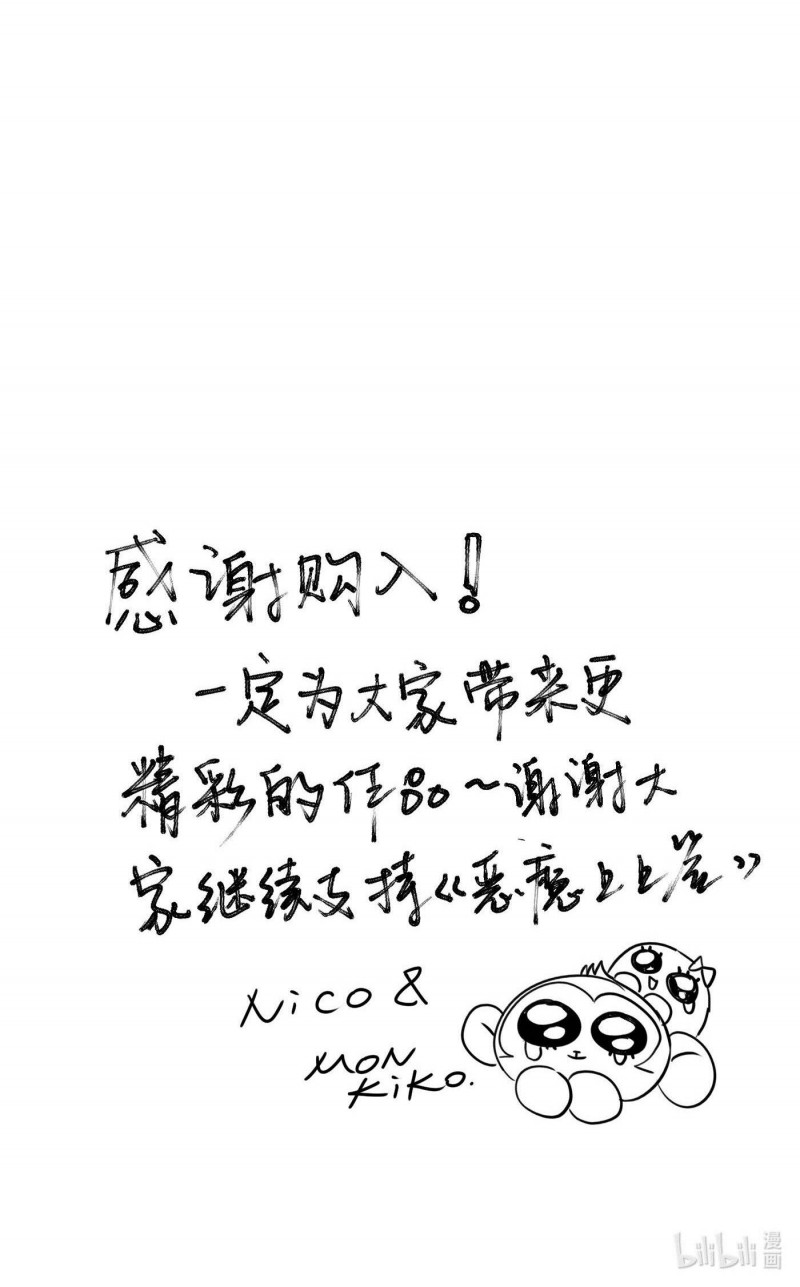 感谢购入!
一定为大家带来更
精彩的作品~谢谢大
家继续支持《恶魔上上签》
Nico &
MON
KiKO.
bilibili 漫画